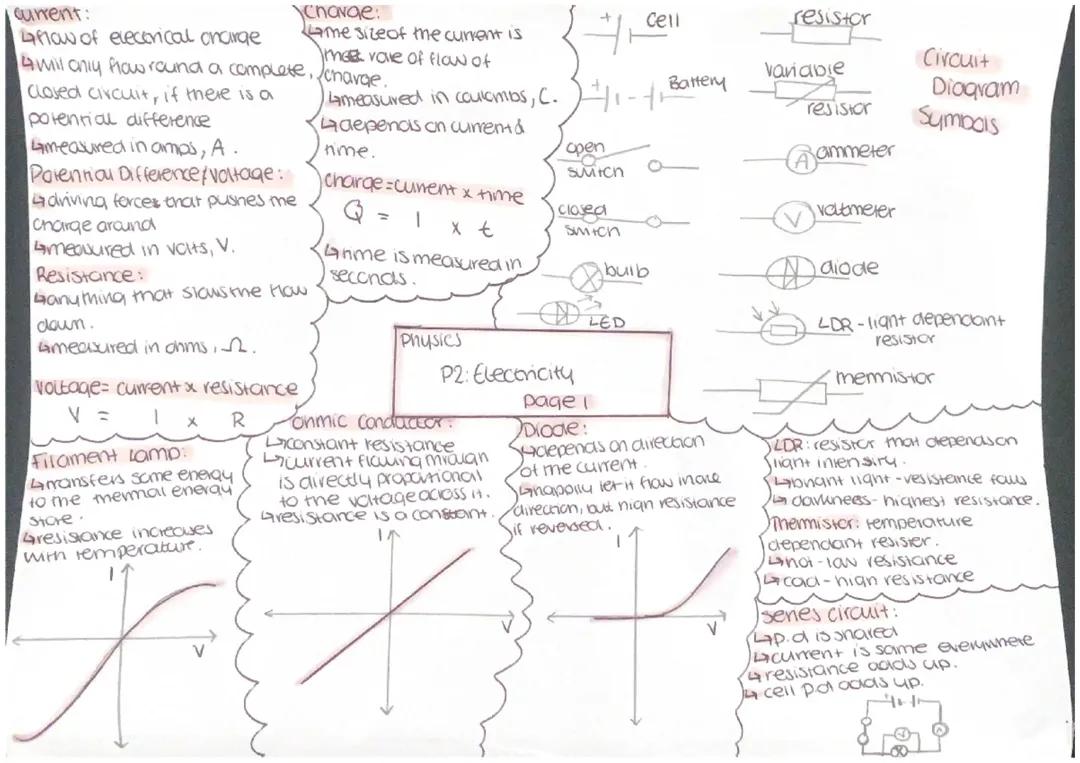 Current:
↳flow of electrical charge
↳will only flow round a complete,
closed circuit, if there is a
potential difference
↳measured in amps, A.
Potential Difference/Voltage:
↳driving force that pushes the
charge around
↳measured in volts, V.
Resistance:
↳anything that slows the flow
down.
↳measured in ohms, Ω.
Voltage= current x resistance
V = I x R
Charge:
↳the size of the current is
the rate of flow of
charge.
↳measured in coulombs, C.
↳depends on current &
time.
charge=current x time
Q = I x t
↳time is measured in
seconds.
Circuit
Diagram
Symbols
+ cell
+ Battery
open
switch
closed
switch
bulb
LED
resistor
variable
resistor
A ammeter
V voltmeter
diode
LDR - light dependant
resistor
thermistor
Physics
P2: Electricity
page 1
Filament Lamp:
↳transfers some energy
to the thermal energy
store.
↳resistance increases
with temperature.
I
V
Ohmic Conductor:
↳constant resistance
↳current flowing through
is directly proportional
to the voltage across it.
↳resistance is a constant.
I
V
Diode:
↳depends on direction
of the current.
↳happily let it flow in one
direction, but high resistance
if reversed.
I
V
LDR: resistor that depends on
light intensity.
↳bright light - resistance falls
↳darkness - highest resistance.
Thermistor: temperature
dependant resister.
↳hot - low resistance
↳cold - high resistance
Series circuit:
↳p.d is shared
↳current is same everywhere
↳resistance adds up.
↳cell p.d adds up.
A
V